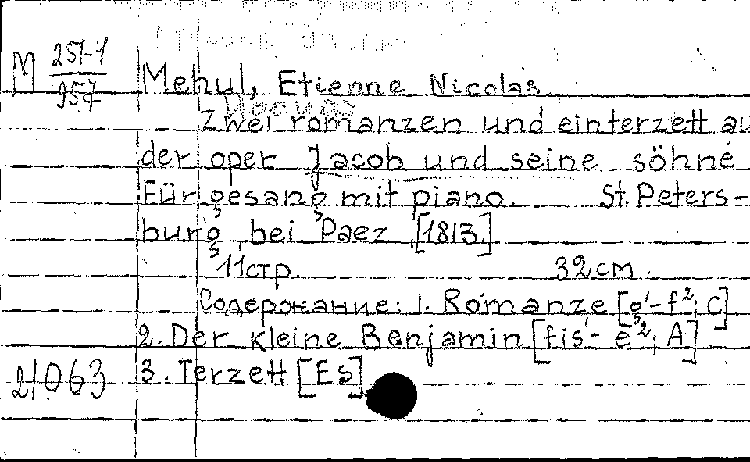 M 251-1
957
Mehul, Etienne Nicolas.
Zwei romanzen und ein terzett au
der oper Jacob und seine söhne
Für gesang mit piano. St. Peters-
burg, bei Paez [1813.]
11 стр. 32 см.
Содержание: 1. Romanze [e'-f²; C]
2. Der kleine Benjamin [fis'-e²; A]
21063 3. Terzett [Es]